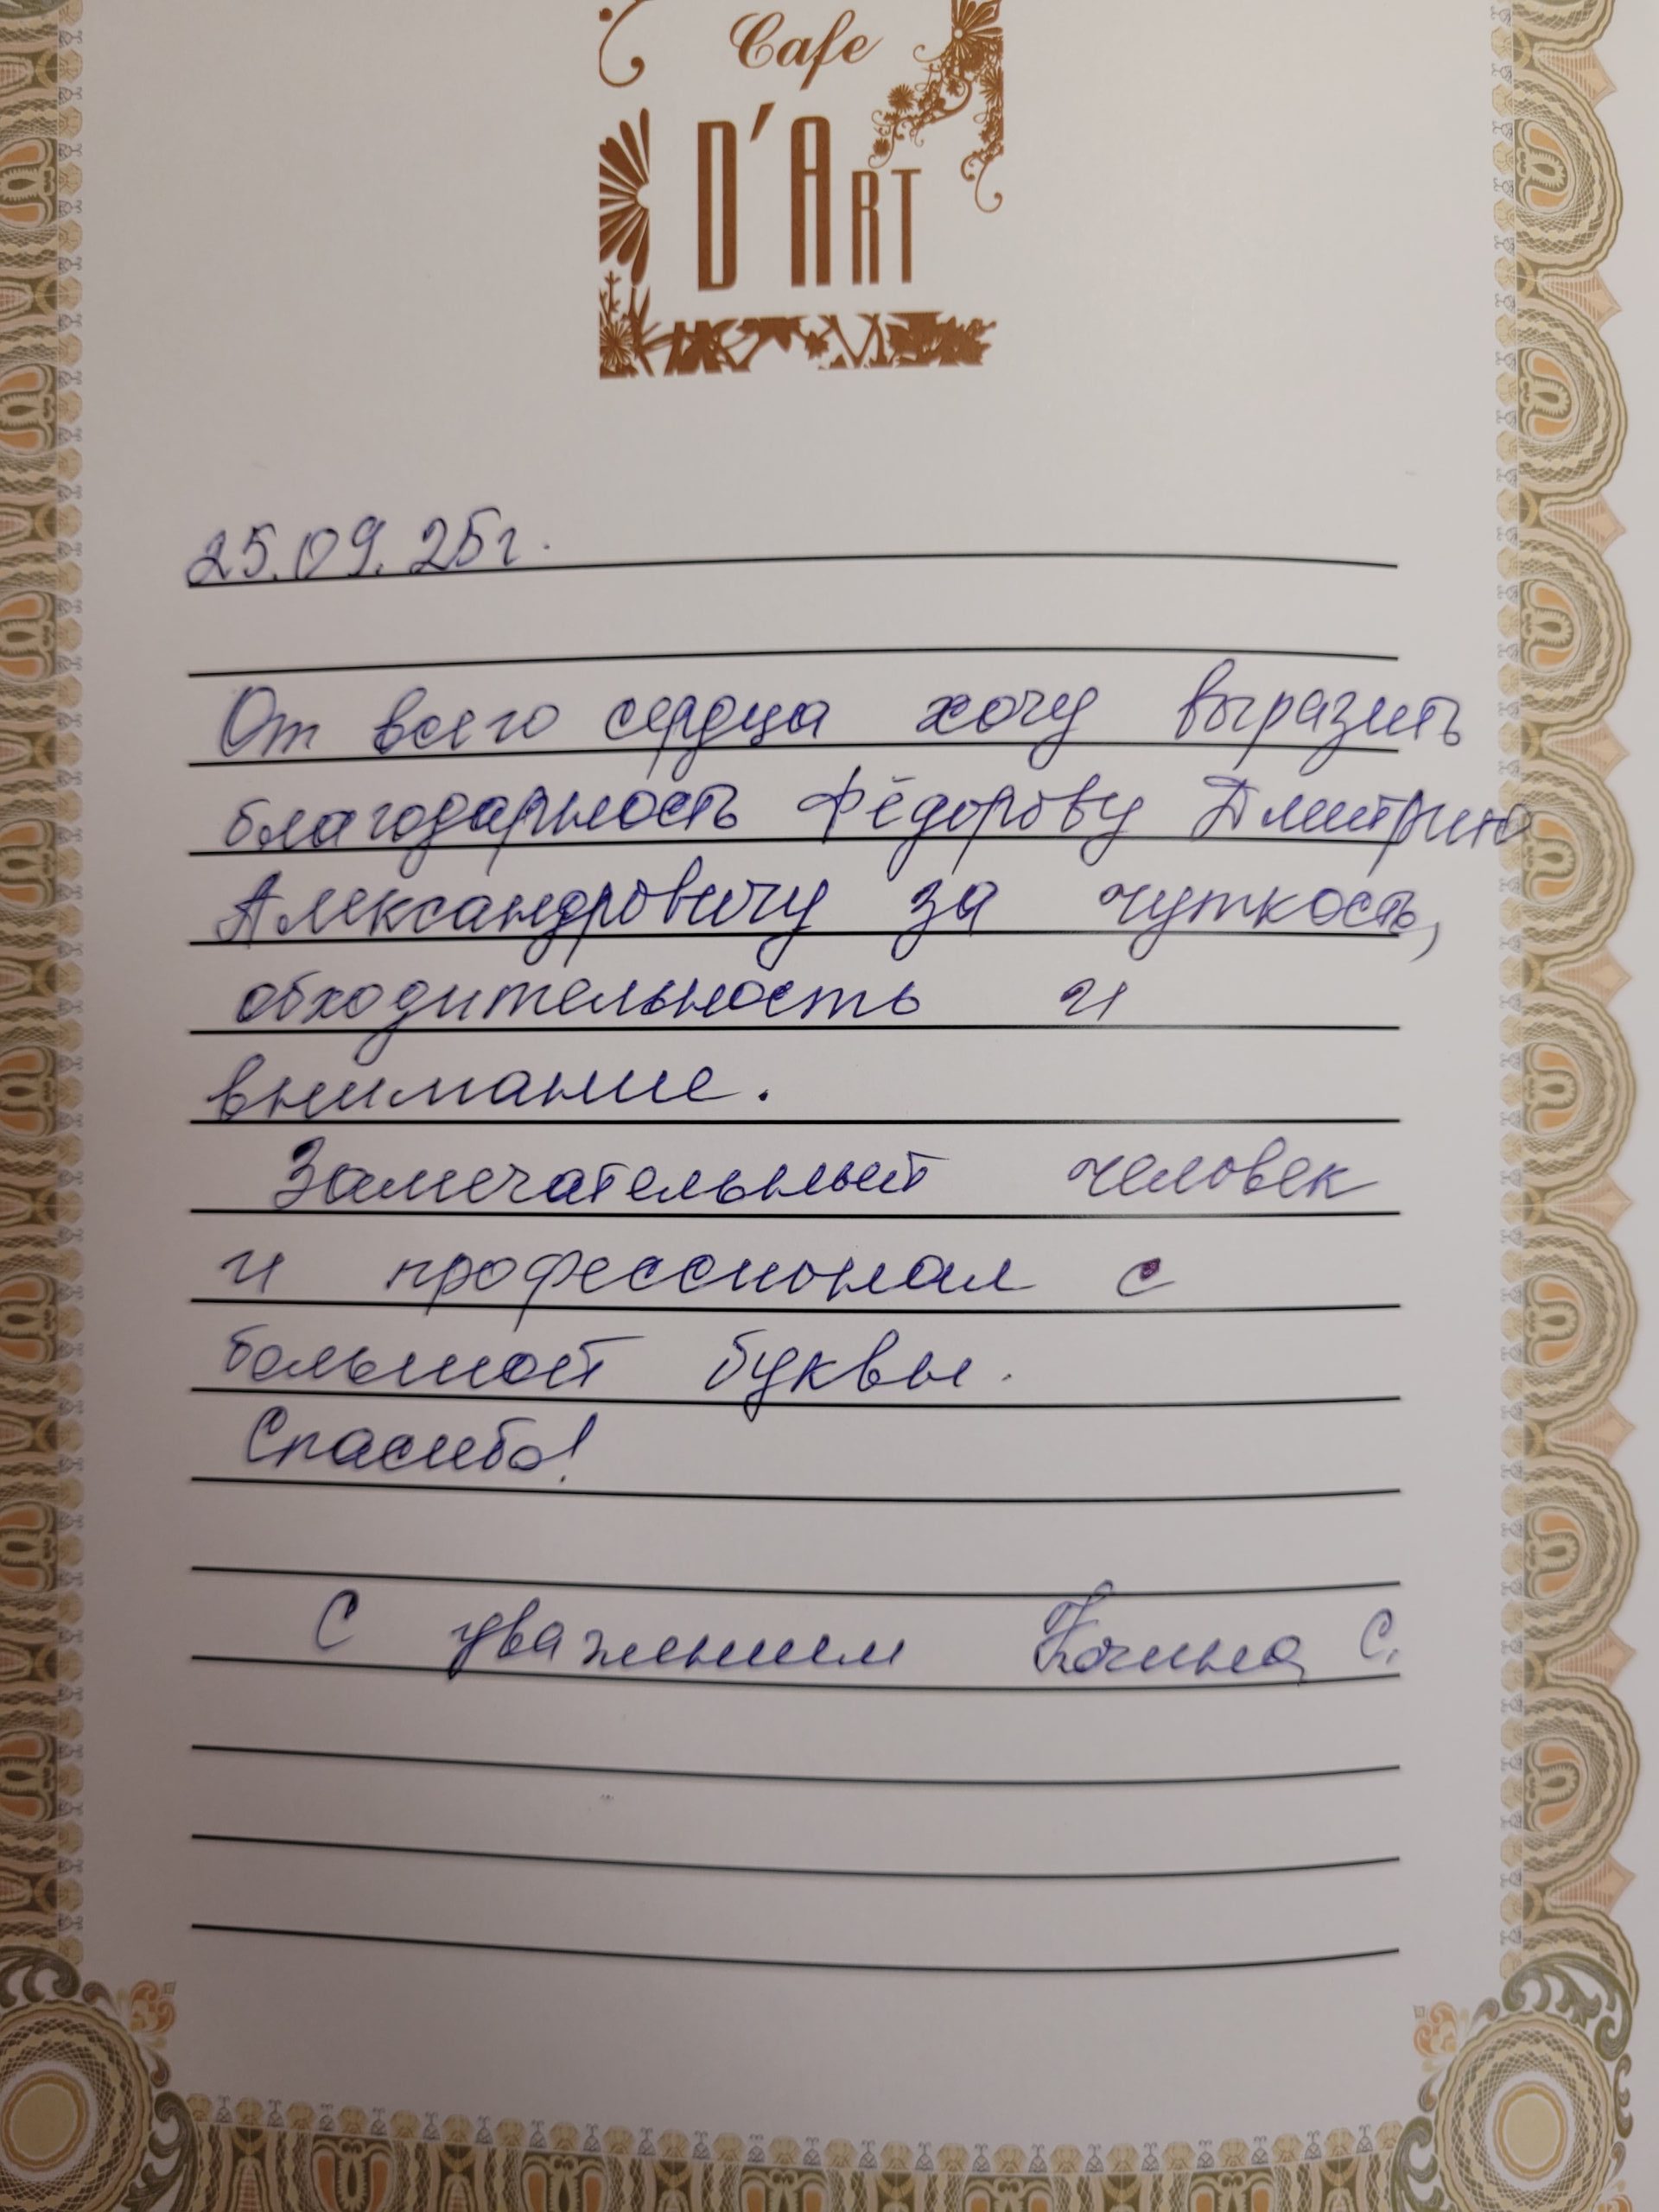 Cafe
D'ART
25.09.25г.
От всего сердца хочу выразить
благодарность Фёдорову Дмитрию
Александровичу за чуткость,
обходительность и
внимание.
Замечательный человек
и профессионал с
большой буквы.
Спасибо!
С уважением Кочина С.